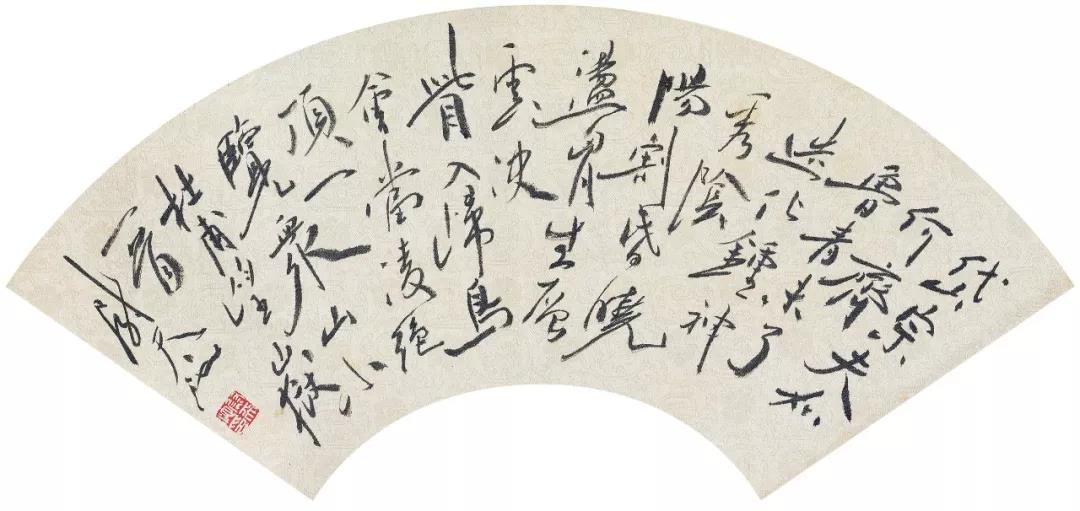 岱宗夫如
何齊
魯青未了
造化鍾神
秀陰
陽割昏曉
盪胸生層
雲決
眥入歸鳥
會當凌絕
頂一
覽眾山小
杜甫望嶽
一首